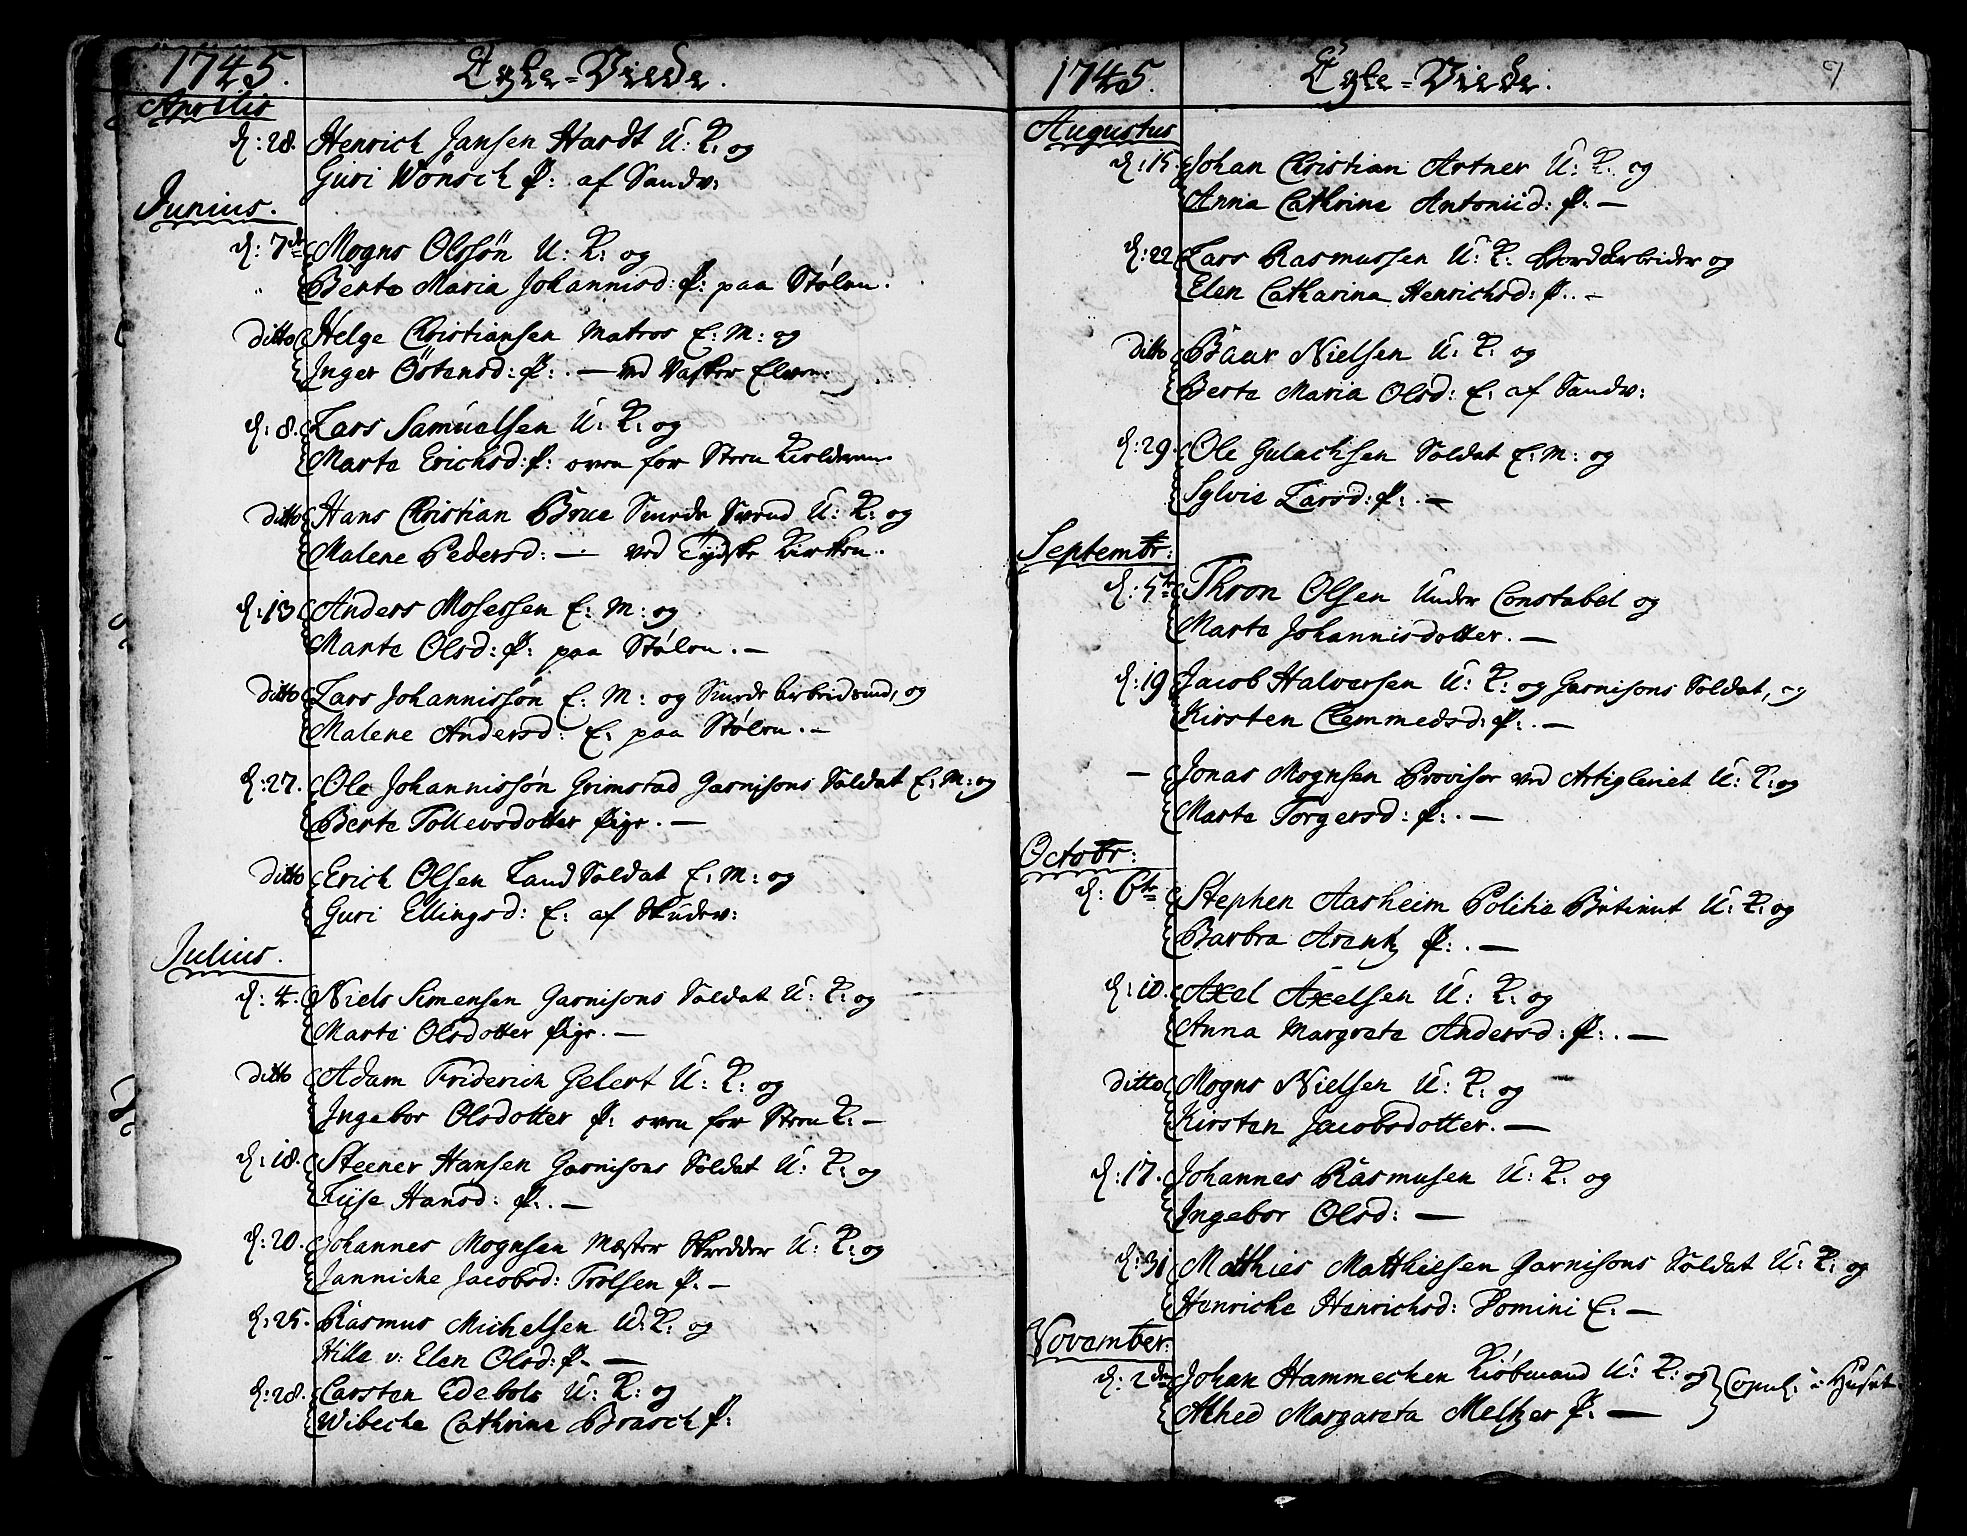 1745. Egte-Viede.
Aprilis
d: 28. Henrich Jansen Hardt U: K: og
Guri Wönsch P: af Sandv:
Junius.
d: 7de Mogns Olssøn U: K: og
Berte Maria Johannisd: P: paa Stølen.
Ditto Helge Christiansen Matros E: M: og
Inger Östensd: P: . — ved Vasker Elven.
d: 8. Lars Samuelsen U: K: og
Marte Erichsd: P: oven for Steen Kielderen.
Ditto Hans Christian Brue Smede Svend U: K: og
Malene Pedersd: — ved Tydske Kirken.
d: 13. Anders Mosessen E: M: og
Marte Olsd: P: paa Stølen. —
Ditto Lars Johannissøn E: M: og Smede Arbeidsmd, og
Malene Andersd: E: paa Stølen. —
d: 27. Ole Johannissøn Grimstad Garnisons Soldat E: M: og
Berte Tollevsdotter Pige. —
Ditto Erich Olsen Land Soldat E: M: og
Guri Ellingsd: E: af Skudev:
Julius.
d: 4. Niels Simensen Garnisons Soldat U: K: og
Marte Olsdotter Pige. —
Ditto Adam Friderich Gelert U: K: og
Ingebor Olsdotter P: oven for Steen K: —
d: 18. Steener Hansen Garnisons Soldat U: K: og
Lyse Hansd: P: . —
d: 20. Johannes Mognsen Mester Skredder U: K: og
Janniche Jacobsd: Trolsen P: —
d: 25. Rasmus Michelsen U: K: og
Hille v: Elen Olsd: P. —
d: 28. Carsten Edebols U: K: og
Wibeche Cathrine Brasch P:
1745. Egte-Viede. 7
Augustus
d: 15. Johan Christian Artner U: K. og
Anna Cathrine Antoniid: P: —
d: 22 Lars Rasmussen U: K: Bordarbeider og
Elen Catharina Henrichsd: P. . —
Ditto Baar Nielsen U: K: og
Berte Maria Olsd: E: af Sandv:
d: 29. Ole Gulachsen Soldat E: M: og
Sylvie Larsd: P: . —
Septembr:
d: 5te Thron Olsen Under Constabel og
Marte Johannisdotter. —
d: 19 Jacob Halversen U: K: og Garnisons Soldat, og
Kirsten Clemmedsd: P: . —
— Jonas Mognsen Provisor ved Artigleriet U: K: og
Marte Torgersd: P: . —
Octobr:
d: 6te Stephen Aasheim Politie Betient U: K: og
Barbra Arentz P: . —
d: 10. Axel Axelsen U: K: og
Anna Margrete Andersd: P: . —
Ditto Mogns Nielsen U: K: og
Kirsten Jacobsdotter. —
d: 17. Johannes Rasmusen U: K: og
Ingebor Olsd: —
d: 31 Matthies Matthiesen Garnisons Soldat U: K: og
Henriche Henrichsd: Pomini E. —
November:
d: 2den Johan Hammechen Kiøbmand U: K: og } Copul: i Huset
Alhed Margareta Meltzer P: —